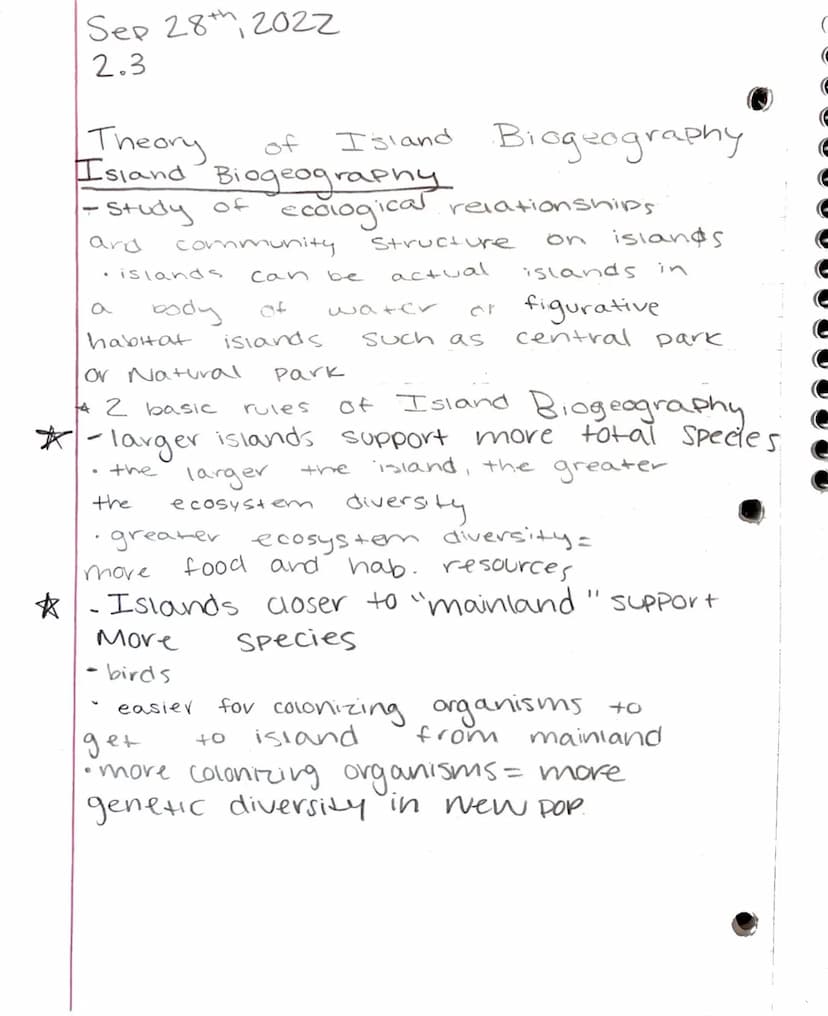 Sep 28th, 2022
2.3
Theory of Island Biogeography
Island Biogeography
- study of ecological relationships
and community structure on islands
• islands can be actual islands in
a body of water or figurative
habitat islands such as central park
or Natural park
★ 2 basic rules of Island Biogeography
☆ - larger islands support more total species
• the larger the island, the greater
the ecosystem diversity
• greater ecosystem diversity =
more food and hab. resources
☆ - Islands closer to "mainland" support
More species
- birds
• easier for colonizing organisms to
get to island from mainland
• more colonizing organisms = more
genetic diversity in new pop.